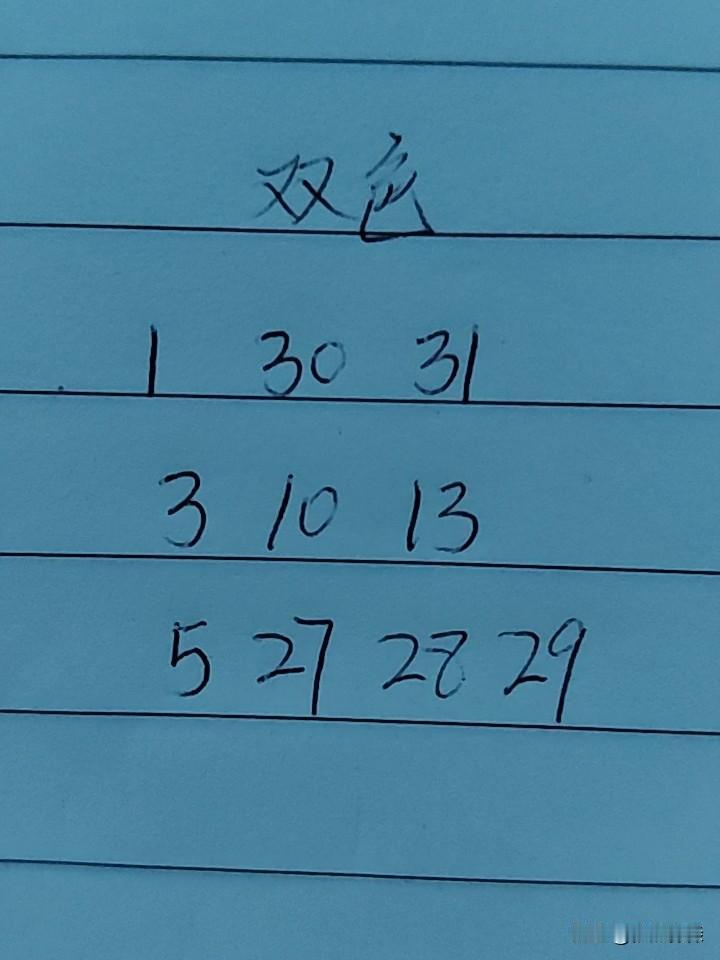 双色
1 30 31
3 10 13
5 27 28 29